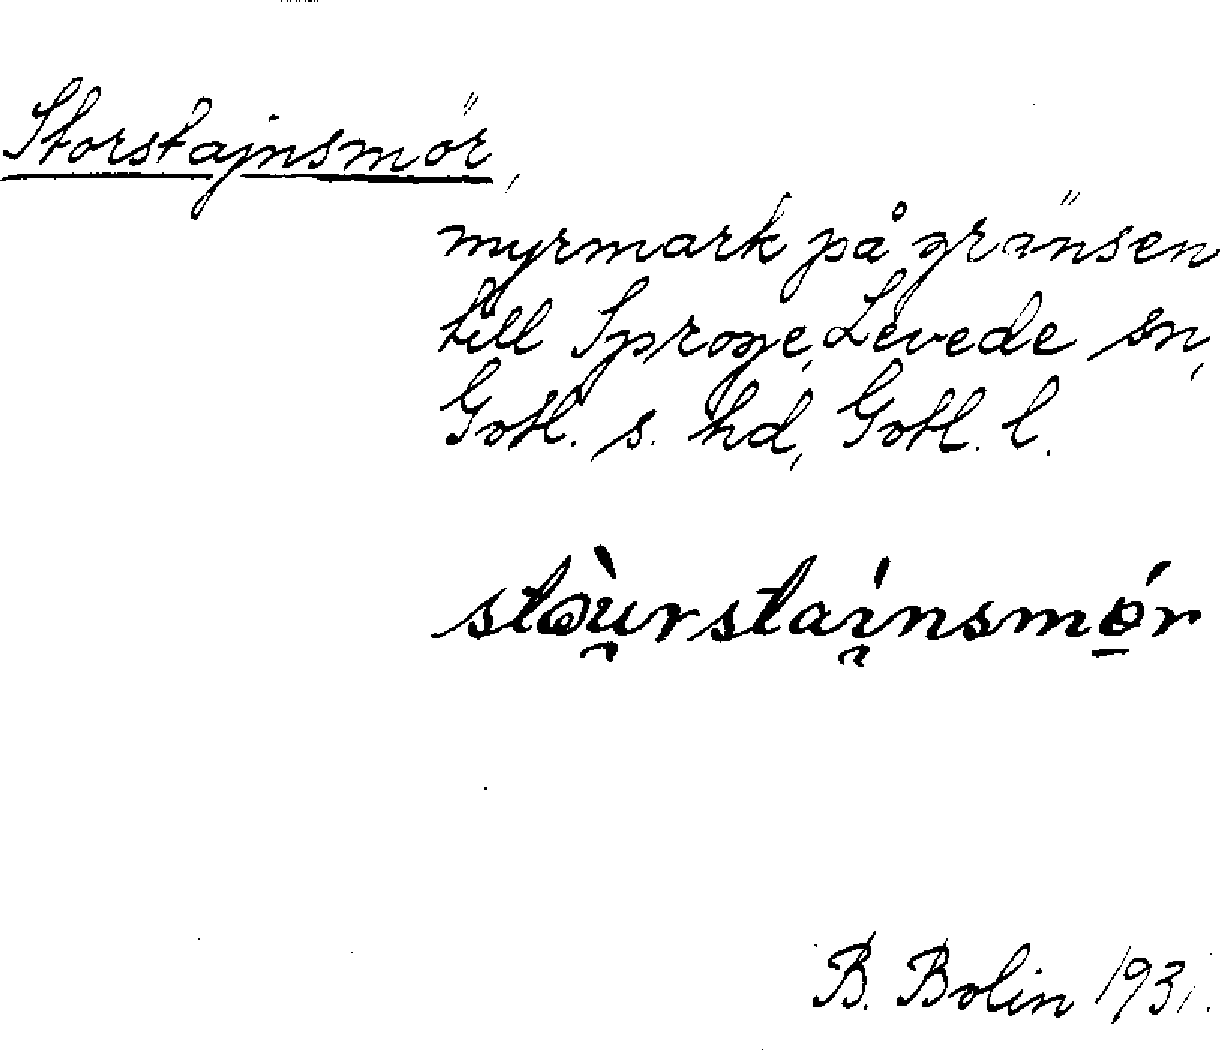 Storstajnsmör,
myrmark på gränsen
till Sproge, Levede sn,
Gotl. s. hd, Gotl. l.
stəùrstaínsmǿr
B. Bolin 1931.